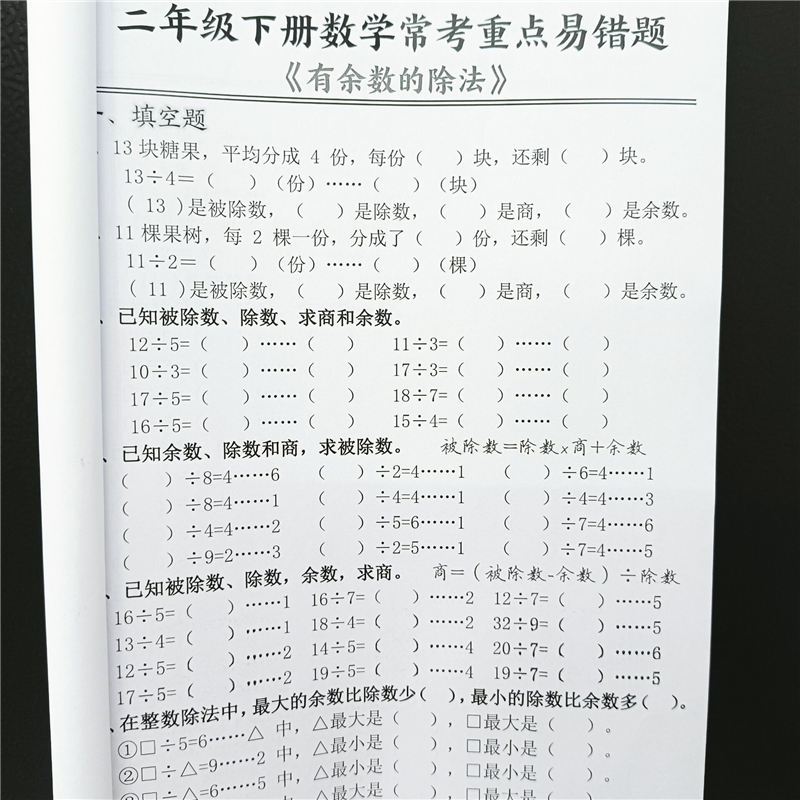 二年级下册数学常考重点易错题
《有余数的除法》
一、填空题
13块糖果，平均分成 4 份，每份（ ）块，还剩（ ）块。
13÷4=（ ）（份）……（ ）（块）
( 13 )是被除数，（ ）是除数，（ ）是商，（ ）是余数。
11棵果树，每 2 棵一份，分成了（ ）份，还剩（ ）棵。
11÷2=（ ）（份）……（ ）（棵）
( 11 )是被除数，（ ）是除数，（ ）是商，（ ）是余数。
、已知被除数、除数、求商和余数。
12÷5=（ ）……（ ） 11÷3=（ ）……（ ）
10÷3=（ ）……（ ） 17÷3=（ ）……（ ）
17÷5=（ ）……（ ） 18÷7=（ ）……（ ）
16÷5=（ ）……（ ） 15÷4=（ ）……（ ）
、已知余数、除数和商，求被除数。 被除数=除数×商+余数
（ ）÷8=4……6 （ ）÷2=4……1 （ ）÷6=4……1
（ ）÷8=4……1 （ ）÷4=4……1 （ ）÷4=4……3
（ ）÷4=4……2 （ ）÷5=6……1 （ ）÷7=4……6
（ ）÷9=2……3 （ ）÷2=5……1 （ ）÷7=4……5
、已知被除数、除数，余数，求商。 商=（被除数-余数）÷除数
16÷5=（ ）……1 16÷7=（ ）……2 12÷7=（ ）……5
13÷4=（ ）……1 18÷4=（ ）……2 32÷9=（ ）……5
12÷5=（ ）……2 14÷5=（ ）……4 20÷7=（ ）……6
17÷5=（ ）……2 19÷5=（ ）……4 19÷7=（ ）……5
、在整数除法中，最大的余数比除数少（ ），最小的除数比余数多（ ）。
①□÷5=6……△ 中，△最大是（ ），□最大是（ ）。
②□÷△=9……2 中，△最小是（ ），□最小是（ ）。
③□÷△=6……5 中，△最小是（ ），□最小是（ ）。